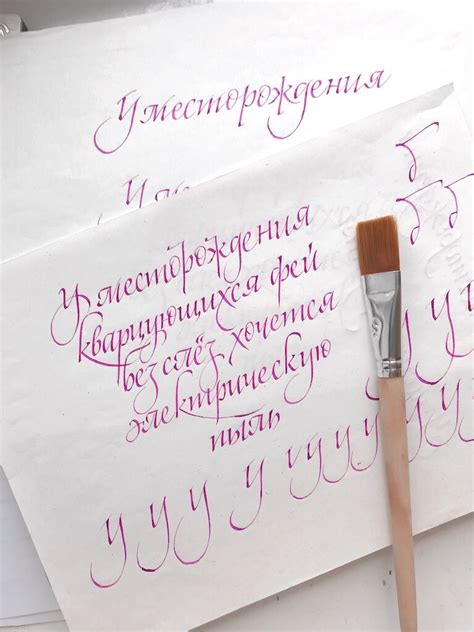 У месторождения
У м
б
У месторождения
кварцующихся фей
без слёз хочется
электрическую
пыль
б б
у у
у у у у у у у у у